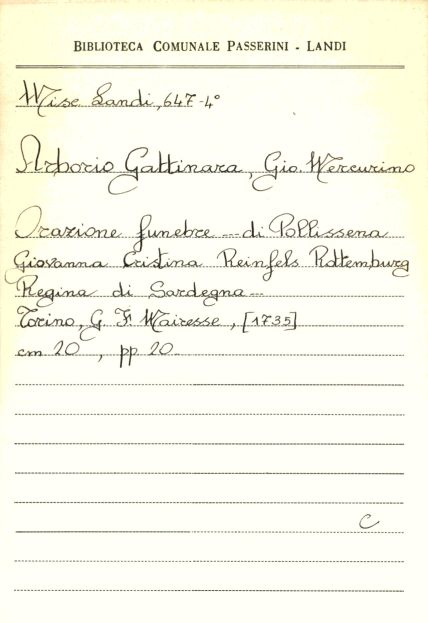 BIBLIOTECA COMUNALE PASSERINI - LANDI
Misc Landi, 647-4°
Arborio Gattinara, Gio. Mercurino
Orazione funebre ... di Pollissena
Giovanna Cristina Reinfels Rottemburg
Regina di Sardegna ...
Torino, G. F. Mairesse, [1735]
cm 20, pp 20
C